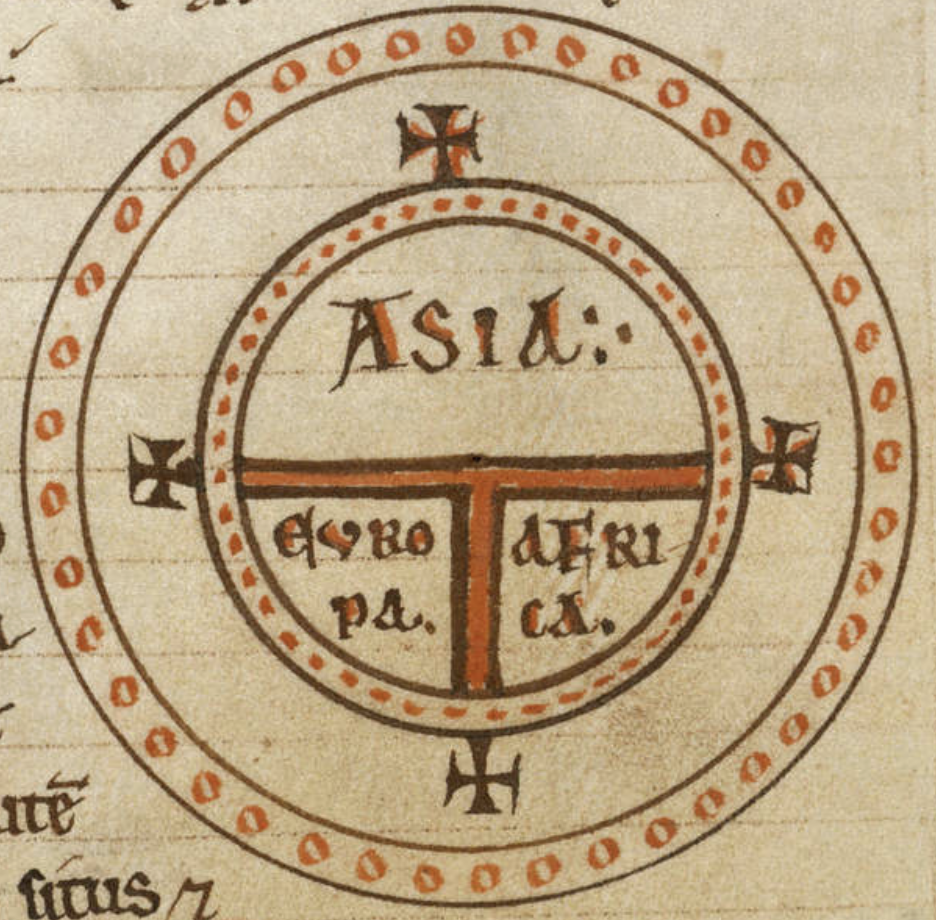 ASIA:·
EVRO
PA.
AFRI
CA.
utē
situs ⁊